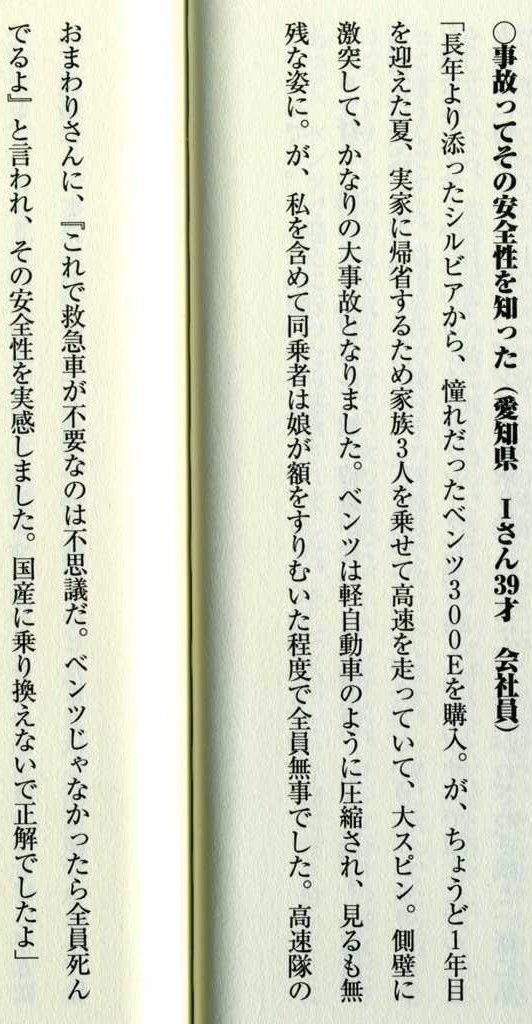 ○事故ってその安全性を知った（愛知県　Iさん39才　会社員）
「長年より添ったシルビアから、憧れだったベンツ300Eを購入。が、ちょうど1年目
を迎えた夏、実家に帰省するため家族3人を乗せて高速を走っていて、大スピン。側壁に
激突して、かなりの大事故となりました。ベンツは軽自動車のように圧縮され、見るも無
残な姿に。が、私を含めて同乗者は娘が額をすりむいた程度で全員無事でした。高速隊の
おまわりさんに、『これで救急車が不要なのは不思議だ。ベンツじゃなかったら全員死ん
でるよ』と言われ、その安全性を実感しました。国産に乗り換えないで正解でしたよ」